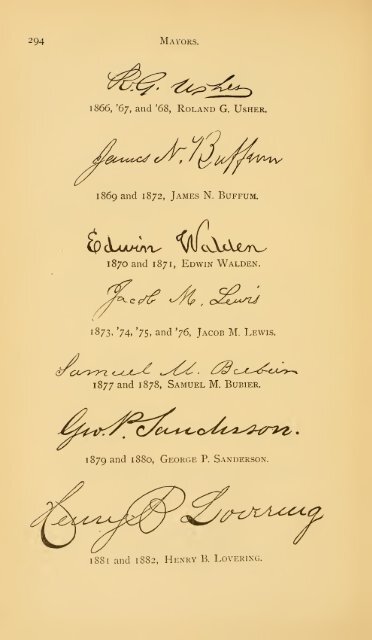 294 MAYORS.
R. G. Usher
1866, '67, and '68, ROLAND G. USHER.
James N. Buffum
1869 and 1872, JAMES N. BUFFUM.
Edwin Walden
1870 and 1871, EDWIN WALDEN.
Jacob M. Lewis
1873, '74, '75, and '76, JACOB M. LEWIS.
Samuel M. Bubier
1877 and 1878, SAMUEL M. BUBIER.
Geo. P. Sanderson.
1879 and 1880, GEORGE P. SANDERSON.
Henry B Lovering
1881 and 1882, HENRY B. LOVERING.